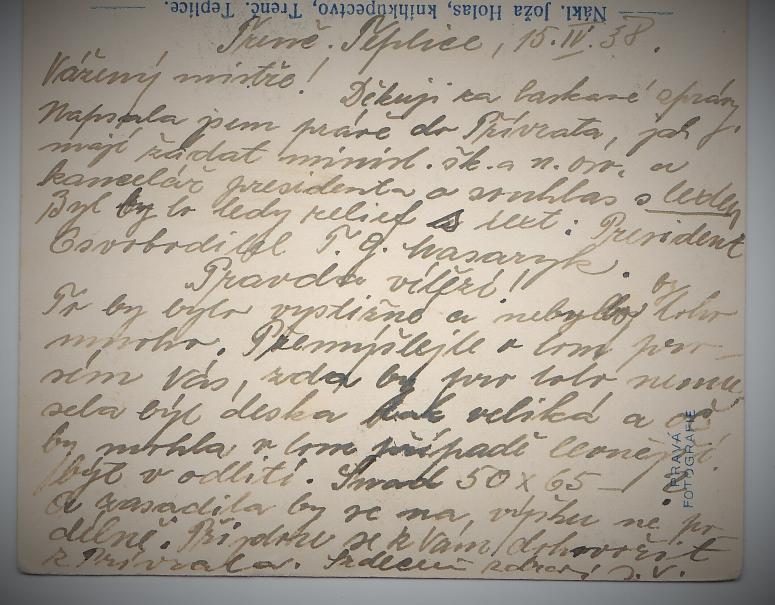 Nákl. Joža Holas, knihkupectvo, Trenč. Teplice.
Trenč. Teplice, 15.IV.38.
Vážený mistře!
Děkuji za laskavé zprávy
Napsala jsem právě do Přívrata, jak
mají žádat minist. šk. a n. osv. a
kancelář presidenta o souhlas s textem
Byl by to tedy relief s text: President
Osvoboditel T. G. Masaryk.
„Pravda vítězí!
To by bylo výstižné a nebylo by toho
mnoho. Přemýšlejte o tom pro-
sím Vás, zda by pro toto nemu
sela být deska tak veliká a
by mohla v tom případě levnější
býti v odlití. Snad 50 x 65
a zasadila by se na výšku ne po
délně. Přijdou se k Vám dohovořit
z Přívrata. Srdečně zdraví J. V.
PRAVÁ
FOTOGRAFIE